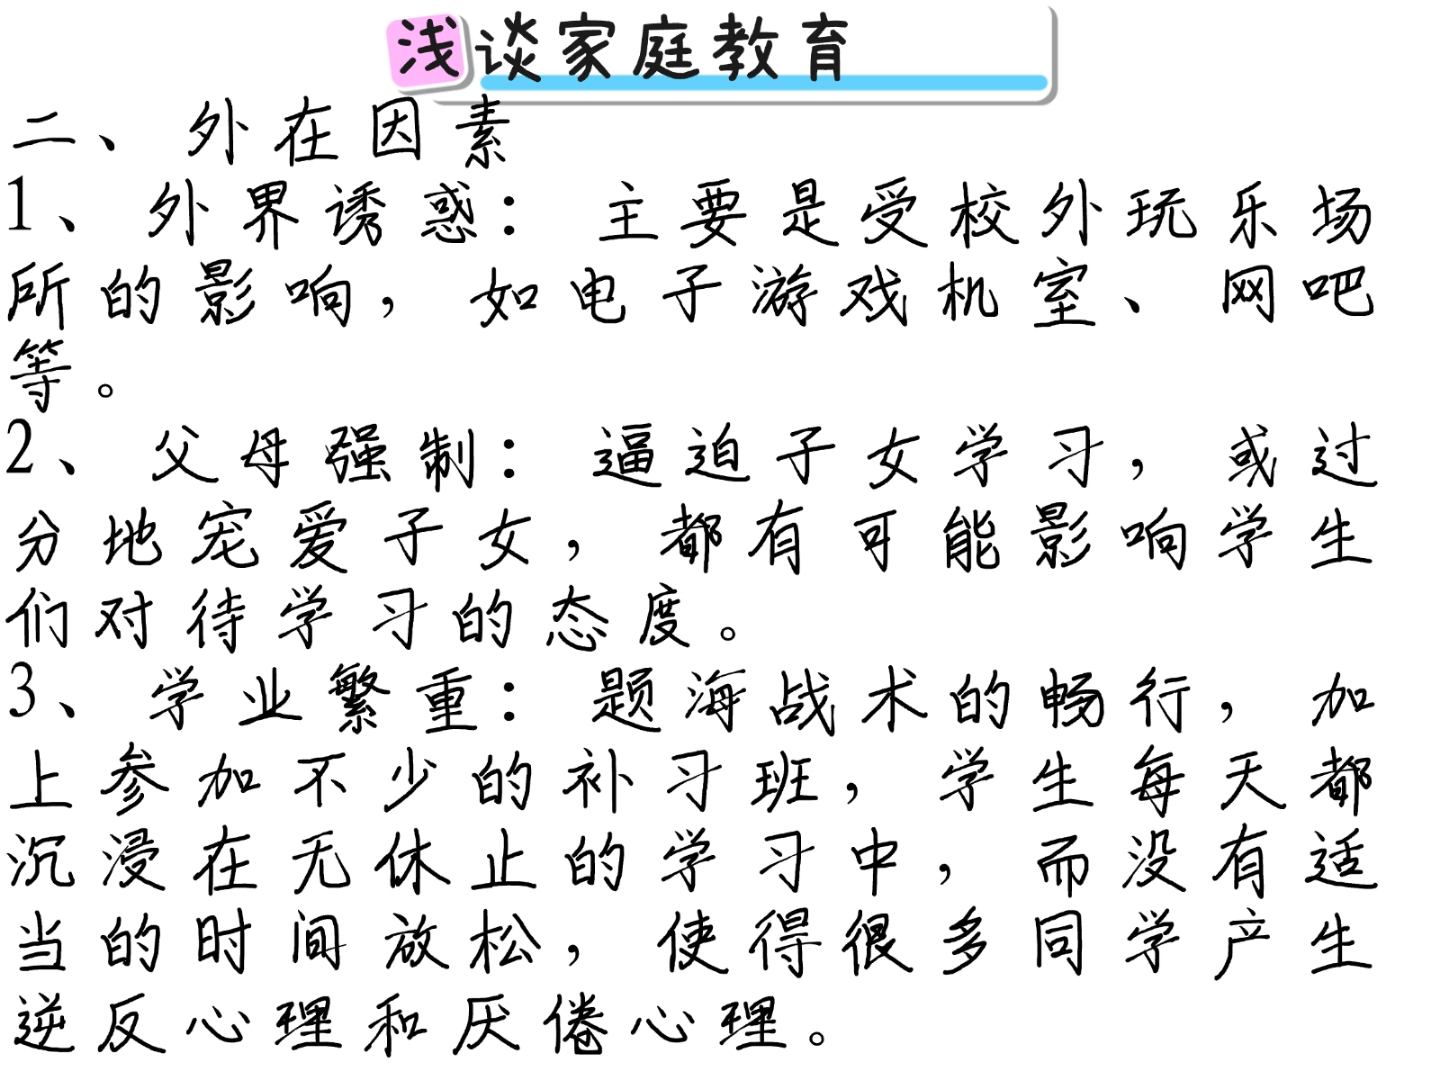 浅谈家庭教育
二、外在因素
1、外界诱惑：主要是受校外玩乐场
所的影响，如电子游戏机室、网吧
等。
2、父母强制：逼迫子女学习，或过
分地宠爱子女，都有可能影响学生
们对待学习的态度。
3、学业繁重：题海战术的畅行，加
上参加不少的补习班，学生每天都
沉浸在无休止的学习中，而没有适
当的时间放松，使得很多同学产生
逆反心理和厌倦心理。